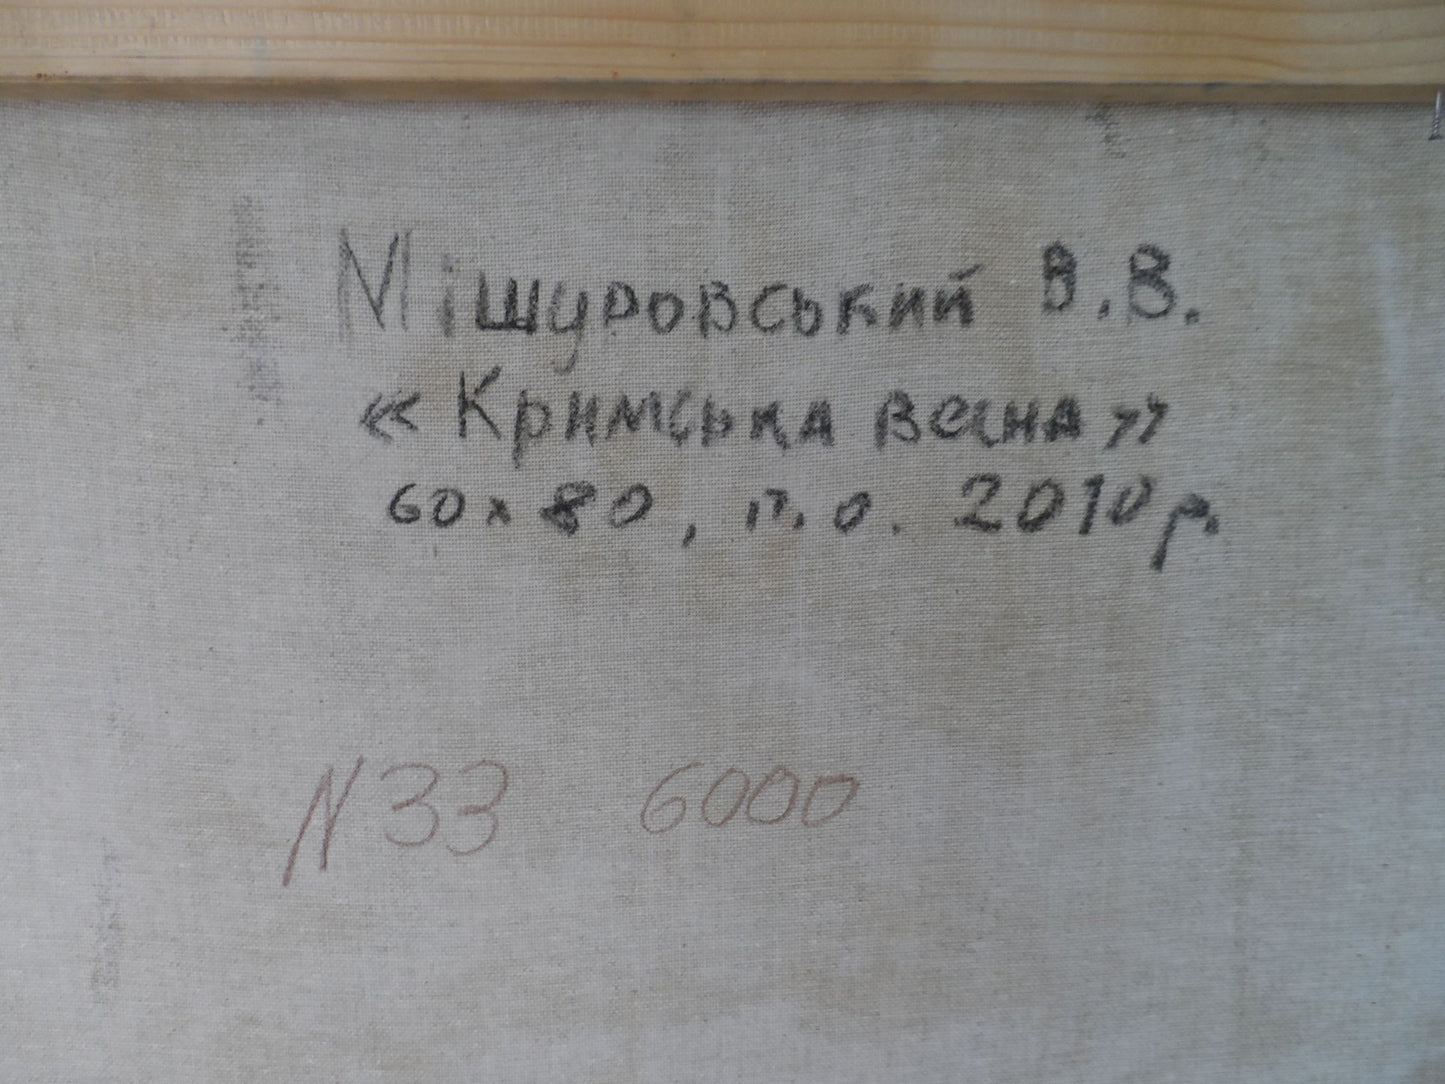 Мішуровський В.В.
«Кримська весна»
60х80, п.о. 2010р.
N33 6000